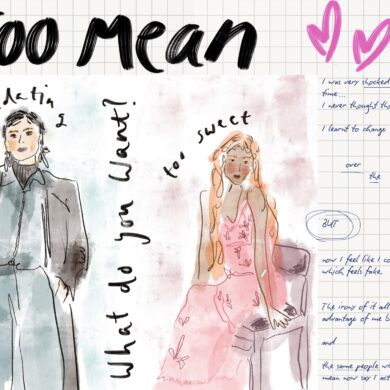 TOO MEAN
dating
What do you Want?
too sweet
I was very shocked
time...
I never thought th
I learnt to change
over
the
BUT
now I feel like I co
which feels fake
The irony of it all
advantage of me b
and
the same people w
mean now say I act